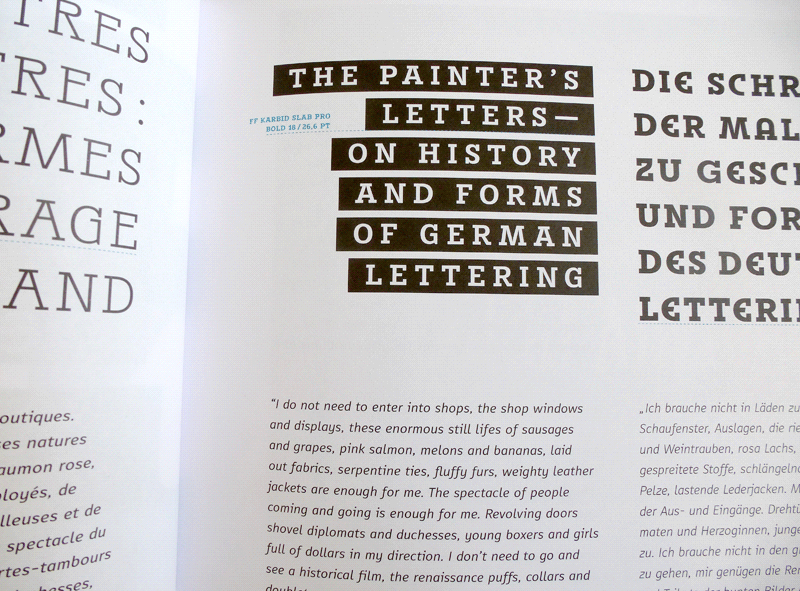 TRES
TRES:
RMES
RAGE
AND
outiques.
ses natures
aumon rose,
ployés, de
lleuses et de
spectacle du
rtes-tambours
chesses,
THE PAINTER'S
LETTERS—
ON HISTORY
AND FORMS
OF GERMAN
LETTERING
FF KARBID SLAB PRO
BOLD 18/26,6 PT
"I do not need to enter into shops, the shop windows
and displays, these enormous still lifes of sausages
and grapes, pink salmon, melons and bananas, laid
out fabrics, serpentine ties, fluffy furs, weighty leather
jackets are enough for me. The spectacle of people
coming and going is enough for me. Revolving doors
shovel diplomats and duchesses, young boxers and girls
full of dollars in my direction. I don't need to go and
see a historical film, the renaissance puffs, collars and
DIE SCHR
DER MAL
ZU GESCH
UND FOR
DES DEUT
LETTERI
„Ich brauche nicht in Läden zu
Schaufenster, Auslagen, die rie
und Weintrauben, rosa Lachs,
gespreitete Stoffe, schlängeln
Pelze, lastende Lederjacken. M
der Aus- und Eingänge. Drehtü
maten und Herzoginnen, junge
zu. Ich brauche nicht in den g
zu gehen, mir genügen die Re